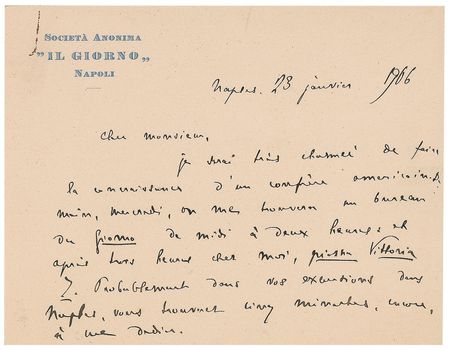 SOCIETÀ ANONIMA
"IL GIORNO„
NAPOLI
Naples. 23 janvier 1906
Cher monsieur,
je serai très charmée de faire
la connaissance d'un confrère americain. De
main, mercredi, on me trouvera au bureau
du Giorno de midi à deux heures et
après trois heures chez moi, piazza Vittoria
7. Probablement dans vos excursions dans
Naples, vous trouverez cinq minutes, encore,
à me dedier.